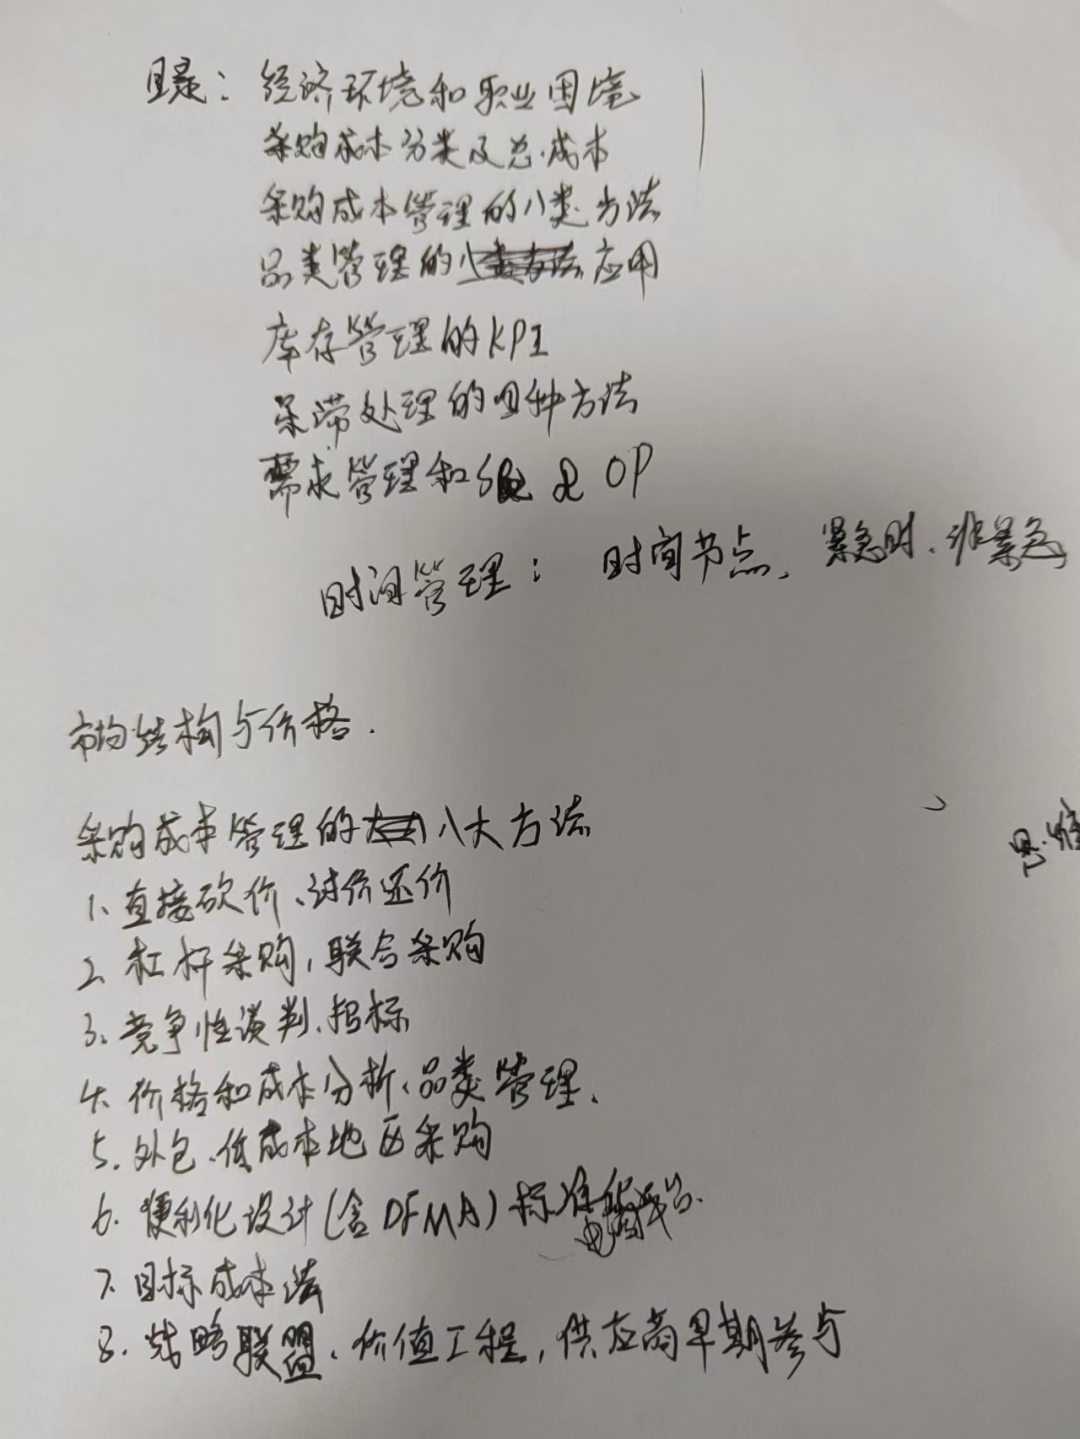 目录：经济环境和职业困境
采购成本分类及总成本
采购成本管理的八类方法
品类管理的应用
库存管理的KPI
呆滞处理的四种方法
需求管理和S&OP
时间管理：时间节点、紧急时、非紧急
市场结构与价格.
采购成本管理的八大方法
1、直接砍价、讨价还价
2、杠杆采购，联合采购
3、竞争性谈判、招标
4、价格和成本分析、品类管理、
5、外包、低成本地区采购
6、便利化设计(含DFMA)标准化
7、目标成本法
8、战略联盟、价值工程，供应商早期参与